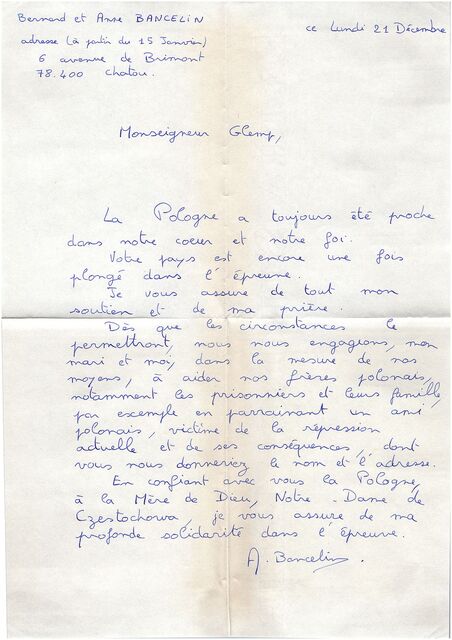 Bernard et Anne BANCELIN
ce Lundi 21 Décembre
adresse (à partir du 15 Janvier)
6 avenue de Brimont
78.400 Chatou.
Monseigneur Glemp,
La Pologne a toujours été proche
dans notre coeur et notre foi.
Votre pays est encore une fois
plongé dans l'épreuve.
Je vous assure de tout mon
soutien et de ma prière.
Dès que les circonstances le
permettront, nous nous engageons, mon
mari et moi, dans la mesure de nos
moyens, à aider nos frères polonais,
notamment les prisonniers et leurs famille,
par exemple en parrainant un ami
polonais, victime de la répression
actuelle et de ses conséquences, dont
vous nous donneriez le nom et l'adresse.
En confiant avec vous la Pologne,
à la Mère de Dieu, Notre-Dame de
Czestochowa, je vous assure de ma
profonde solidarité dans l'épreuve.
A. Bancelin.